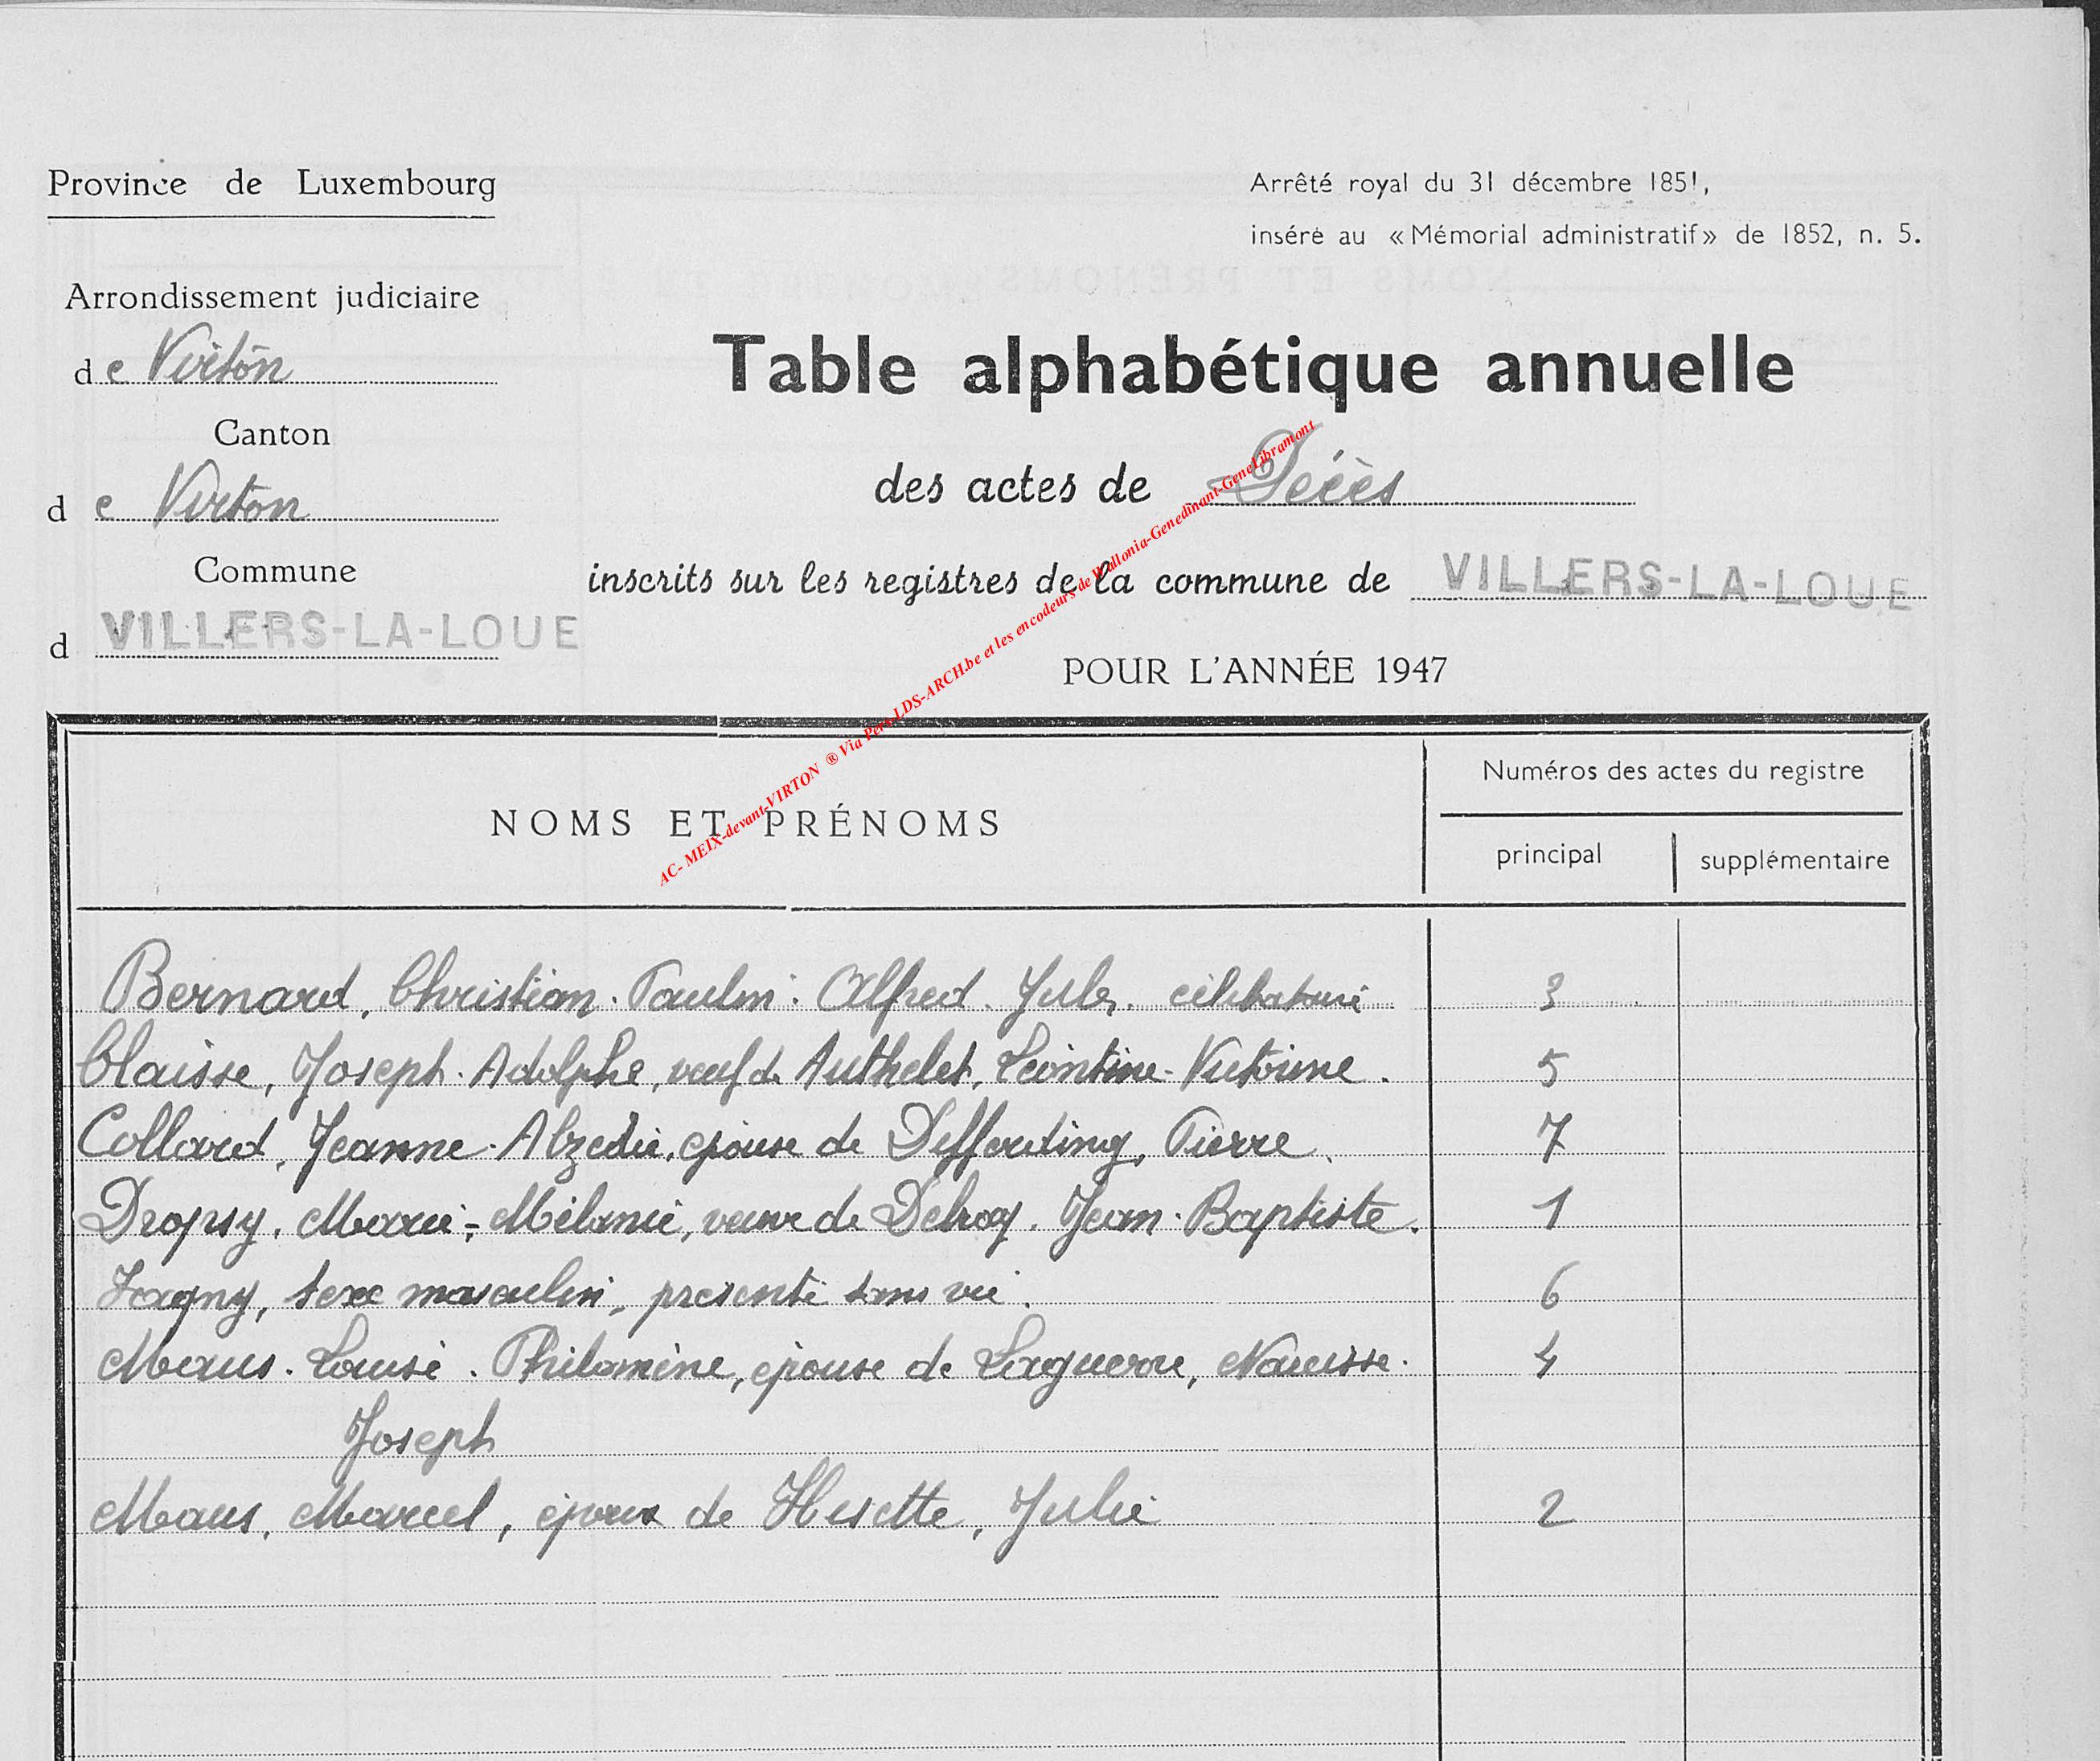 Province de Luxembourg
Arrêté royal du 31 décembre 1851,
inséré au «Mémorial administratif» de 1852, n. 5.
Arrondissement judiciaire
de Virton
Canton
d e Virton
Commune
d VILLERS-LA-LOUE
Table alphabétique annuelle
des actes de Décès
inscrits sur les registres de la commune de VILLERS-LA-LOUE
POUR L'ANNÉE 1947
AC- MEIX-devant-VIRTON ® Via Pers-LDS-ARCH.be et les encodeurs de Wallonia-Genedinant-GeneLibramont
NOMS ET PRÉNOMS
Numéros des actes du registre
principal supplémentaire
Bernard, Christian. Paulin. Alfred. Jules. célibataire 3
Claisse, Joseph. Adolphe, veuf de Authelet, Léontine-Victorine. 5
Collard, Jeanne. Alzedie, épouse de Deffouding, Pierre. 7
Dropsy, Marie-Mélanie, veuve de Delroy. Jean-Baptiste. 1
sexe masculin, présenté sans vie. 6
Maus. Louise. Philomène, épouse de Laguerre, Narcisse. 4
Joseph
Maus, Marcel, époux de Husette, Julie 2